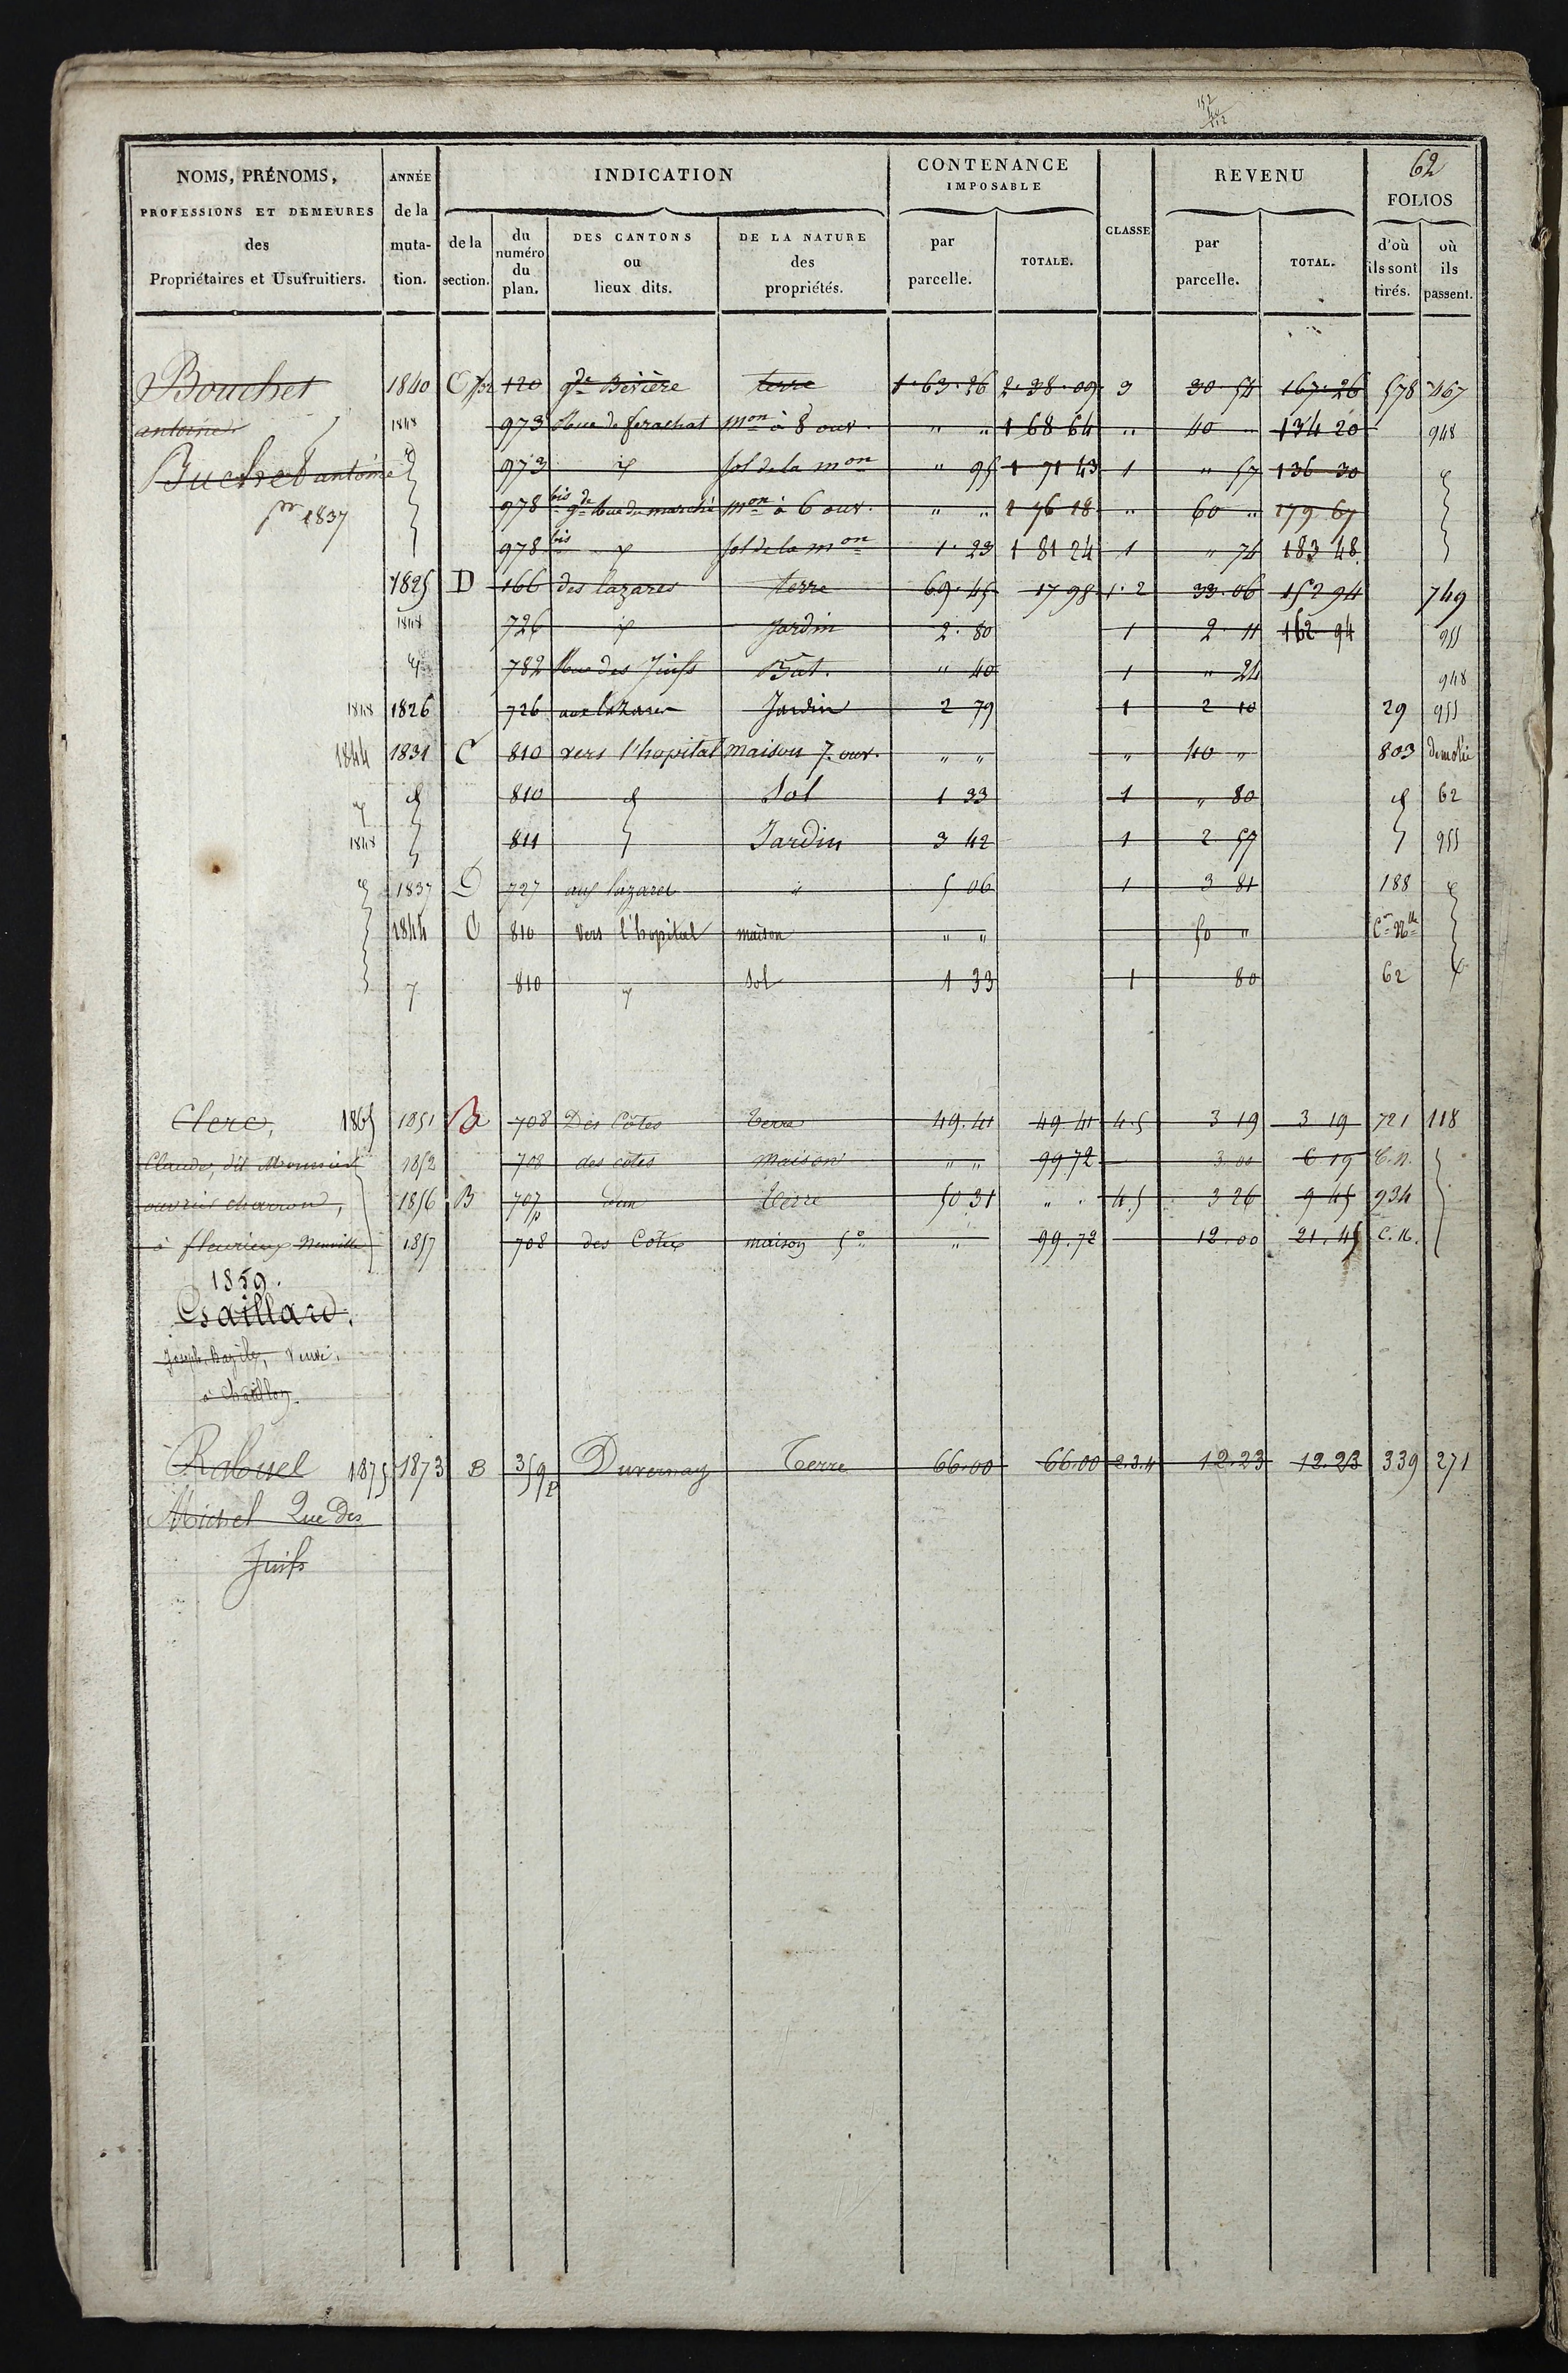 152
40
112
62
NOMS, PRÉNOMS, PROFESSIONS ET DEMEURES des Propriétaires et Usufruitiers.
ANNÉE de la muta-tion.
INDICATION
de la section.
du numéro du plan.
DES CANTONS ou lieux dits.
DE LA NATURE des propriétés.
CONTENANCE IMPOSABLE
par parcelle.
TOTALE.
CLASSE
REVENU
par parcelle.
TOTAL.
FOLIOS
d'où ils sont tirés.
où ils passent.
Bouchet 1840 C 120 gde Bévière terre 1.63.26 2.38.09 3 30.54 167.26 578 467
antoine 1848 973 Rue de ferachat mon à 8 ouv. " " 1 68 64 " 40 " 134 20 948
Buchet antoine 973 sol de la mon " 95 1 71 43 1 " 57 136 30
pr 1837 978 bis gde Rue du marché mon à 6 ouv. " " 1 76 18 " 60 " 179 67
978 bis sol de la mon 1.23 1 81 24 1 " 74 183 48
1825 D 166 des lazares terre 69.45 17 98 1.2 33.06 152 94 749
1848 726 jardin 2.80 1 2.11 162 94 955
782 Rue des Juifs Bat. " 40 1 " 24 948
1848 1826 726 aux lazares Jardin 2 79 1 2 10 29 955
1844 1831 C 810 vers l'hopital maison 7. ouv. " " " 40 " 803 demolie
810 Sol 1 33 1 " 80 62
1848 811 Jardin 3 42 1 2 57 955
1837 D 727 aux lazares " 5 06 1 3 81 188
1844 C 810 vers l'hopital maison " " 50 " Con Nlle
810 sol 1 33 1 80 62
Clerc, 1865 1851 B 708 Des Côtes Terre 49.41 49 41 4.5 3 19 3 19 721 118
Claude, dit Mounier 1852 708 des côtes maison " " 99 72 3.00 6 19 C.N.
ouvrier charron, 1856 B 707p Terre 50 31 " " 4.5 3 26 9 45 934
à fleurieux Neuville 1857 708 des Côtes maison 5e " 99.72 12.00 21.45 C.N.
1859.
Gaillard,
Joseph Bazile, veuve,
à Chatillon.
Rabuel 1875 1873 B 359p Duvernay Terre 66.00 66.00 2.3.4 12.23 12.23 339 271
Michel Rue des
Juifs